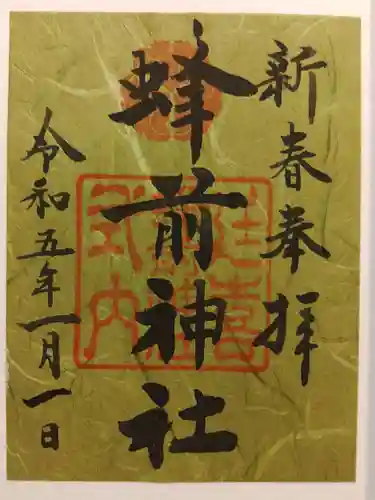 新春奉拝
蜂前神社
令和五年一月一日